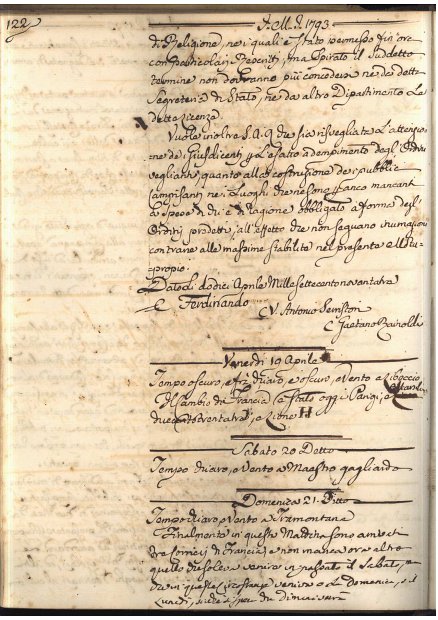 122
A. M. D. 1793
di Religione, ne i quali è stato permesso fin'ora
con particolari Rescritti, ma spirato il suddetto
termine non dovranno più concedersi nè dai detti
Segretari di Stato, nè da altro Dipartimento le
dette Licenze
Vuole inoltre S.A.R. che sia risvegliata l'attenzio
ne dei Giusdicenti l'esatto adempimento degl'Ordini
veglianti, quanto alla costruzione dei pubblici
Campisanti nei Luoghi che ne sono mancanti
a spese di chi è di ragione obbligato a forma degl'
Ordini predetti, all'effetto che non seguano inumazioni
contrarie alle massime stabilite nel presente Motu-
proprio.
Dato li dodici Aprile Millesettecento novantatre
Ferdinando
V. Antonio Serristori
Gaetano Rainoldi
Venerdì 19 Aprile
Tempo oscuro, e chiaro, e oscuro, e Vento a Libeccio
Il Cambio di Francia è stato oggi Parigi
duecento trentatre
Sabato 20 Detto
Tempo chiaro, e Vento a Maestro gagliardo
Domenica 21 Detto
Tempo chiaro, e Vento a Tramontana
Finalmente in questa Mattina sono arrivati
tre corrieri di Francia, e non manca ora altro
quello che soleva venire in passato il Sabato,
in queste circostanze veniva o la Domenica, o il
Lunedì,